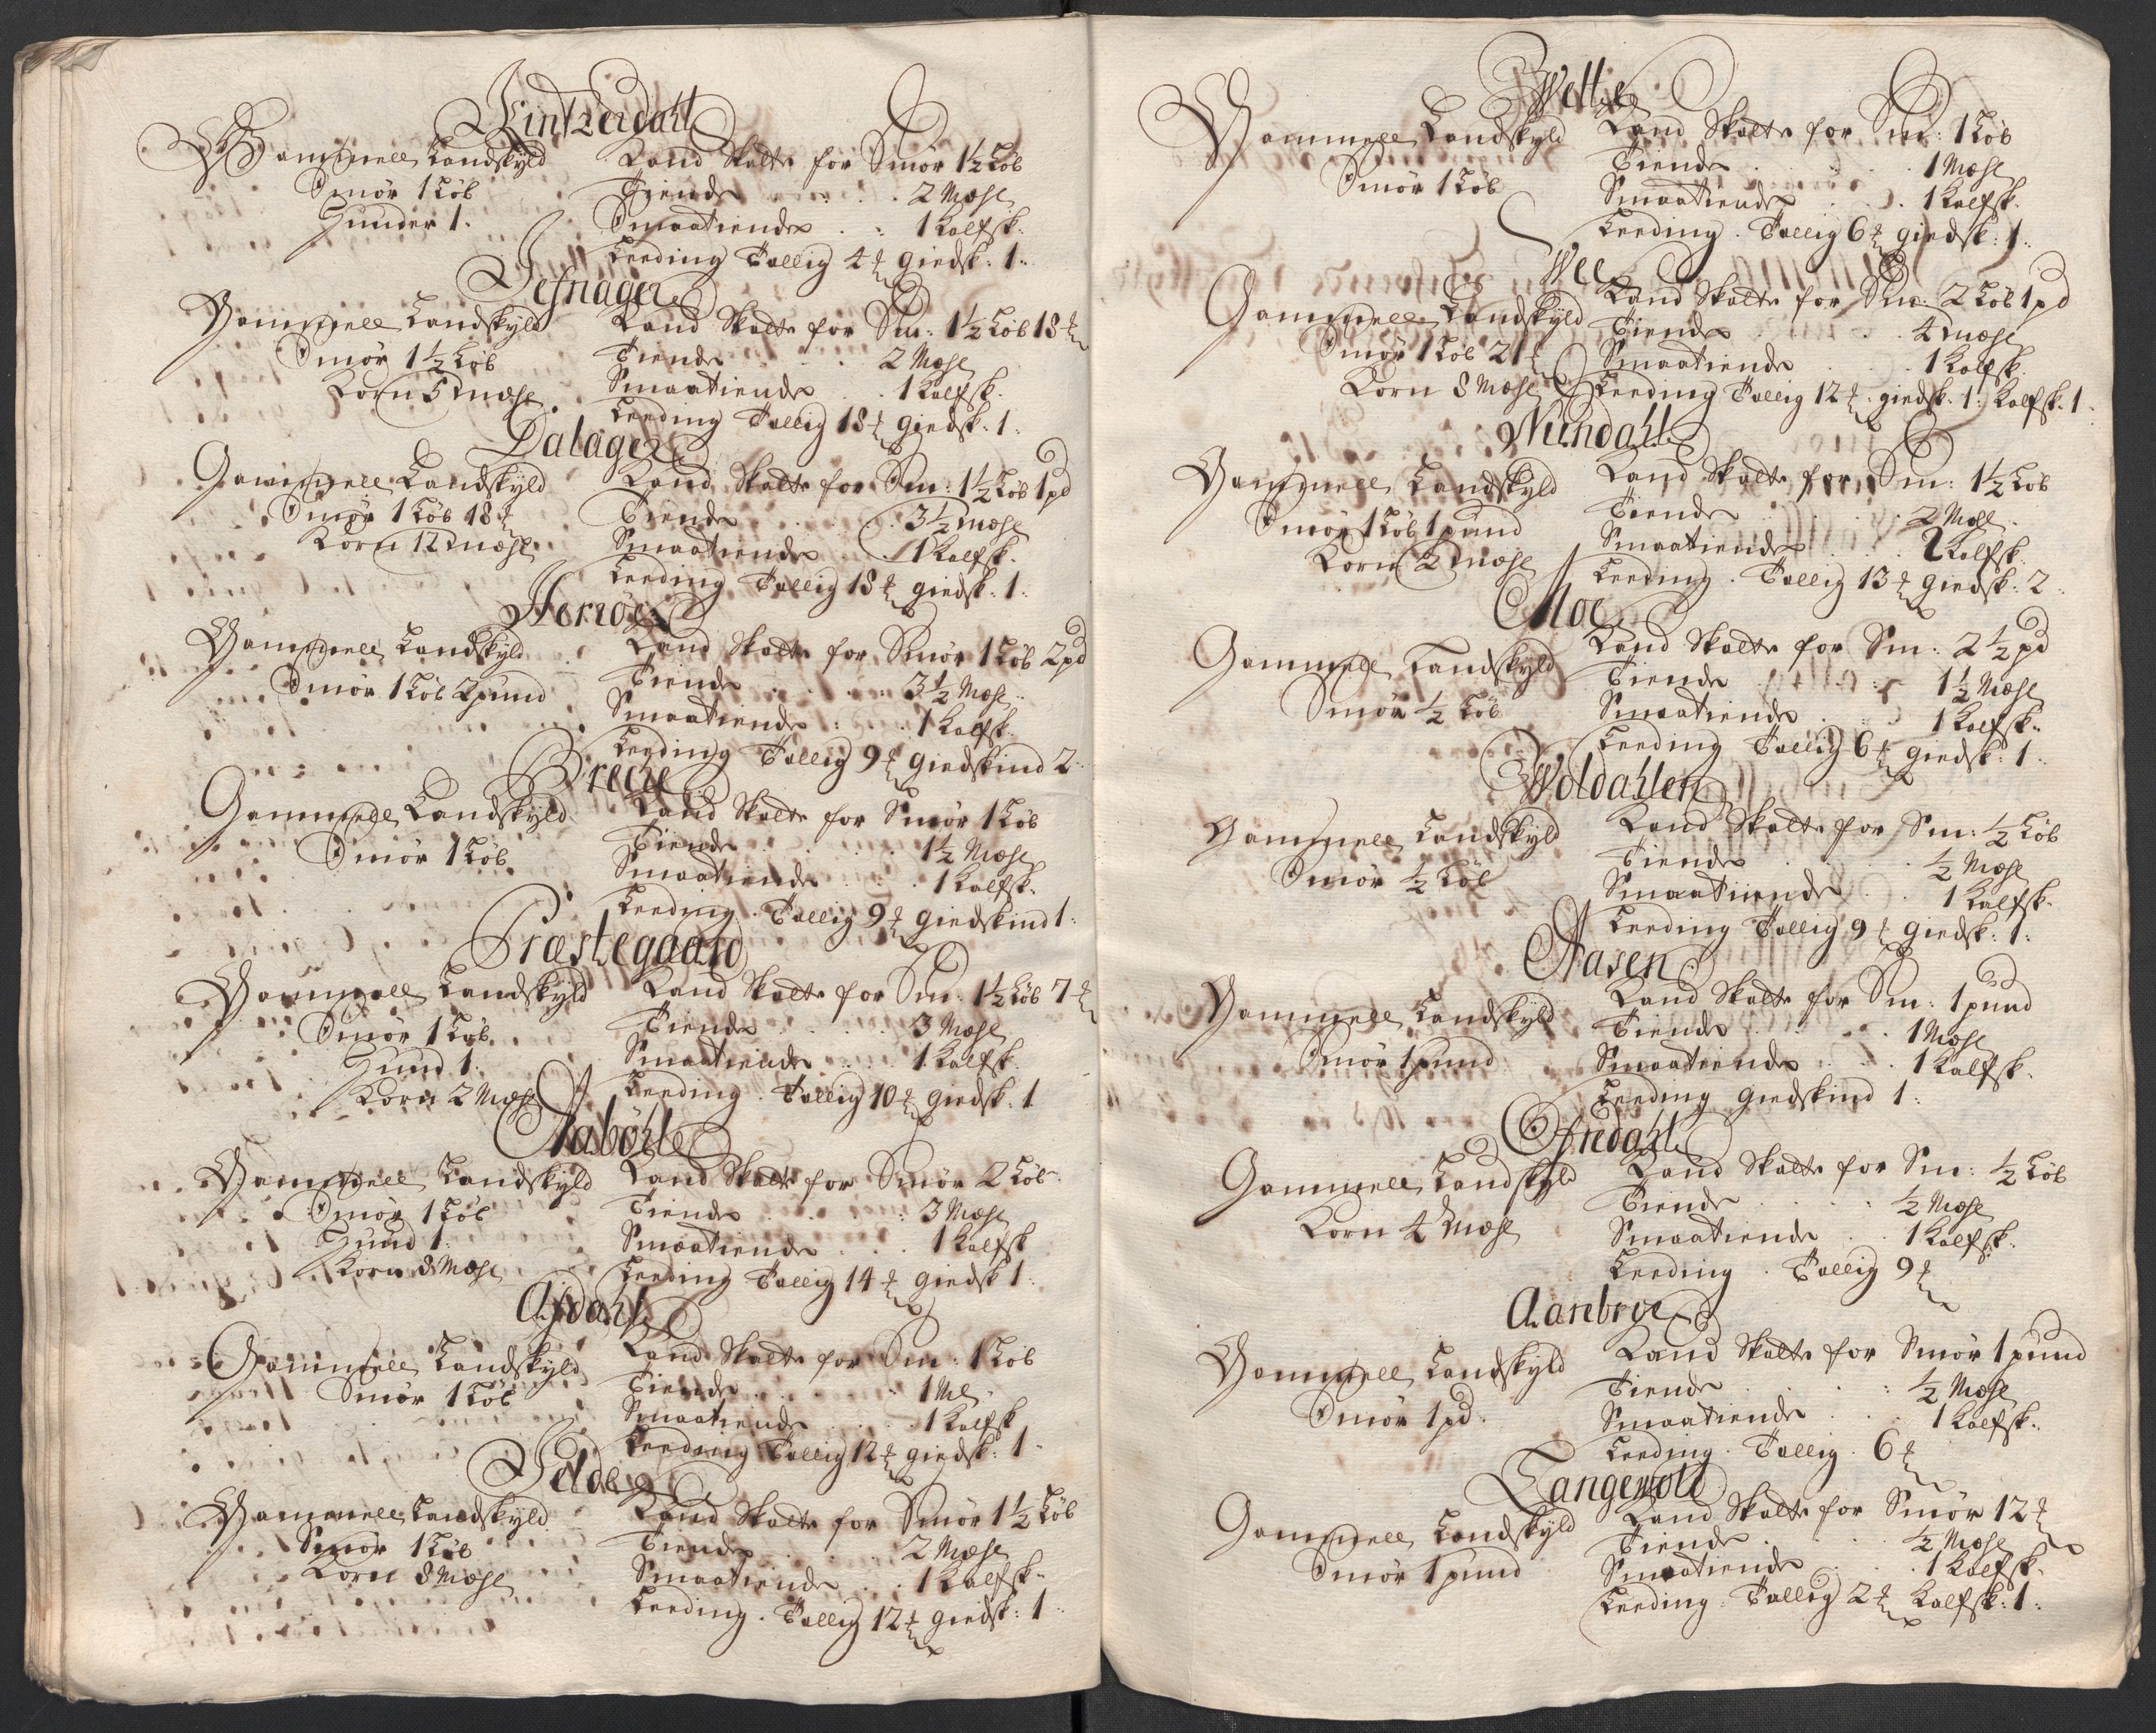 Lintzerdahl
Gammell Landskyld
Smör 1 Löb
Hunder 1.
Land Skatt for Smör 1½ Löb
Tiende . . . 2 Mæhl
Smaatiende . . 1 Kalfsk.
Leeding Tallig 4 ℔ giedsk. 1.
Gammell Landskyld
Smör 1½ Löb
Korn 5 mæhl
Land Skatt for Sm: 1½ Löb 18 ℔
Tiende . . . 2 Mæhl
Smaatiende . . 1 Kalfsk.
Leeding Tallig 18 ℔ giedsk. 1.
Dalager
Gammell Landskyld
Smör 1 Löb 18 ℔
Korn 12 mæhl
Land Skatt for Sm: 1½ Löb 1 pd
Tiende . . . 3½ mæhl
Smaatiende . . 1 Kalfsk.
Leeding Tallig 18 ℔ giedsk. 1.
Gammell Landskyld
Smör 1 Löb 2 pund
Land Skatt for Smör 1 Löb 2 pd
Tiende . . . 3½ Mæhl
Smaatiende . . 1 Kalfsk.
Leeding Tallig 9 ℔ giedskind 2
Gammell Landskyld
Smör 1 Löb
Land Skatt for Smör 1 Löb
Tiende . . . 1½ Mæhl
Smaatiende . . 1 Kalfsk.
Leeding . Tallig 9 ℔ giedskind 1.
Præstegaard
Gammell Landskyld
Smör 1 Löb
Hund 1.
Korn 2 Mæhl
Land Skatt for Sm: 1½ Löb 7 ℔
Tiende . . . 3 Mæhl
Smaatiende . . 1 Kalfsk.
Leeding . Tallig 10 ℔ giedsk. 1
Gammell Landskyld
Smör 1 Löb
Hund 1.
Korn 8 Mæhl
Land Skatt for Smör 2 Löb
Tiende . . . 3 Mæhl
Smaatiende . . 1 Kalfsk
Leeding Tallig 14 ℔ giedsk 1.
Gammell Landskyld
Smör 1 Löb
Land Skatt for Sm: 1 Löb
Tiende . . . 1 Ml
Smaatiende . . 1 Kalfsk
Leeding Tallig 12 ℔ giedsk: 1
Gammell Landskyld
Smör 1 Löb
Korn 8 Mæhl
Land Skatt for Smör 1½ Löb
Tiende . . . 2 Mæhl
Smaatiende . . 1 Kalfsk.
Leeding . Tallig 12 ℔ giedsk: 1
Wette
Gammell Landskyld
Smör 1 Löb
Land Skatt for Sm: 1 Löb
Tiende . . . 1 Mæhl
Smaatiende . . 1 Kalfsk.
Leeding . Tallig 6 ℔ giedsk: 1.
Wee
Gammell Landskyld
Smör 1 Löb 21 ℔
Korn 8 Mæhl
Land Skatt for Sm: 2 Löb 1 pd
Tiende . . . 4 mæhl
Smaatiende . . 1 Kalfsk.
Leeding Tallig 12 ℔ . giedsk. 1. Kalfsk. 1.
Mundahl
Gammell Landskyld
Smör 1 Löb 1 pund
Korn 2 mæhl
Land Skatt for Sm: 1½ Löb
Tiende . . . 2 Mæhl
Smaatiende . . 1 Kalfsk.
Leeding . Tallig 13 ℔ giedsk. 2
Moe
Gammell Landskyld
Smör ½ Löb
Land Skatt for Sm: 2½ pd
Tiende . . . 1½ Mæhl
Smaatiende . . 1 Kalfsk.
Leeding Tallig 6 ℔ giedsk. 1.
Woldahlen
Gammell Landskyld
Smör ½ Löb
Land Skatt for Sm: ½ Löb
Tiende . . . ½ Mæhl
Smaatiende . . 1 Kalfsk.
Leeding Tallig 9 ℔ giedsk: 1.
Aasen
Gammell Landskyld
Smör 1 pund
Land Skatt for Sm: 1 pund
Tiende . . . 1 Mæhl
Smaatiende . . 1 Kalfsk.
Leeding giedskind 1.
Gammell Landskyld
Korn 4 Mæhl
Land Skatt for Sm: ½ Löb
Tiende . . . ½ Mæhl
Smaatiende . . 1 Kalfsk.
Leeding . Tallig 9 ℔
Aarebroe
Gammell Landskyld
Smör 1 pd.
Land Skatt for Smör 1 pund
Tiende . . . ½ Mæhl
Smaatiende . . 1 Kalfsk.
Leeding . Tallig . 6 ℔
Tangewold
Gammell Landskyld
Smör 1 pund
Land Skatt for Smör 12 ℔
Tiende . . . ½ Mæhl
Smaatiende . . 1 Kalfsk.
Leeding . Tallig 2 ℔ Kalfsk: 1.